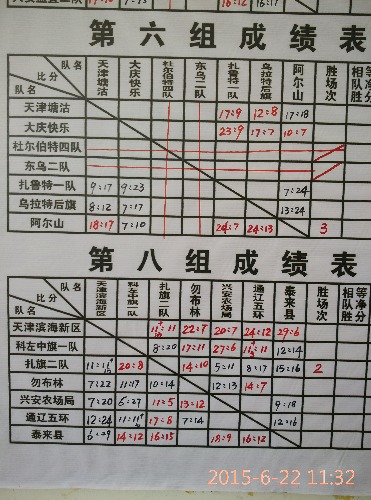 第六组成绩表
队名 比分 队名 天津塘沽 大庆快乐 杜尔伯特四队 东乌二队 扎鲁特一队 乌拉特后旗 阿尔山 胜场次 相队胜 等净分
天津塘沽 17:9 12:8 17:18
大庆快乐 23:9 17:7 10:7
杜尔伯特四队
东乌二队
扎鲁特一队 9:17 9:23 7:24
乌拉特后旗 8:12 7:17 13:24
阿尔山 18:17 7:10 24:7 24:13 3
第八组成绩表
队名 比分 队名 天津滨海新区 科左中旗一队 扎旗二队 勿布林 兴安农场局 通辽五环 泰来县 胜场次 相队胜 等净分
天津滨海新区 :11 22:7 20:7 24:12 29:6
科左中旗一队 8:20 17:11 27:6 :11 12:14
扎旗二队 11:11 20:8 14:10 5:11 8:17 15:16 2
勿布林 7:22 11:17 10:14 12:13 14:7
兴安农场局 7:20 6:27 11:5 13:12 9:18
通辽五环 12:24 11:11 17:8 7:14 12:16
泰来县 6:29 14:12 16:15 18:9 16:12
2015-6-22 11:32